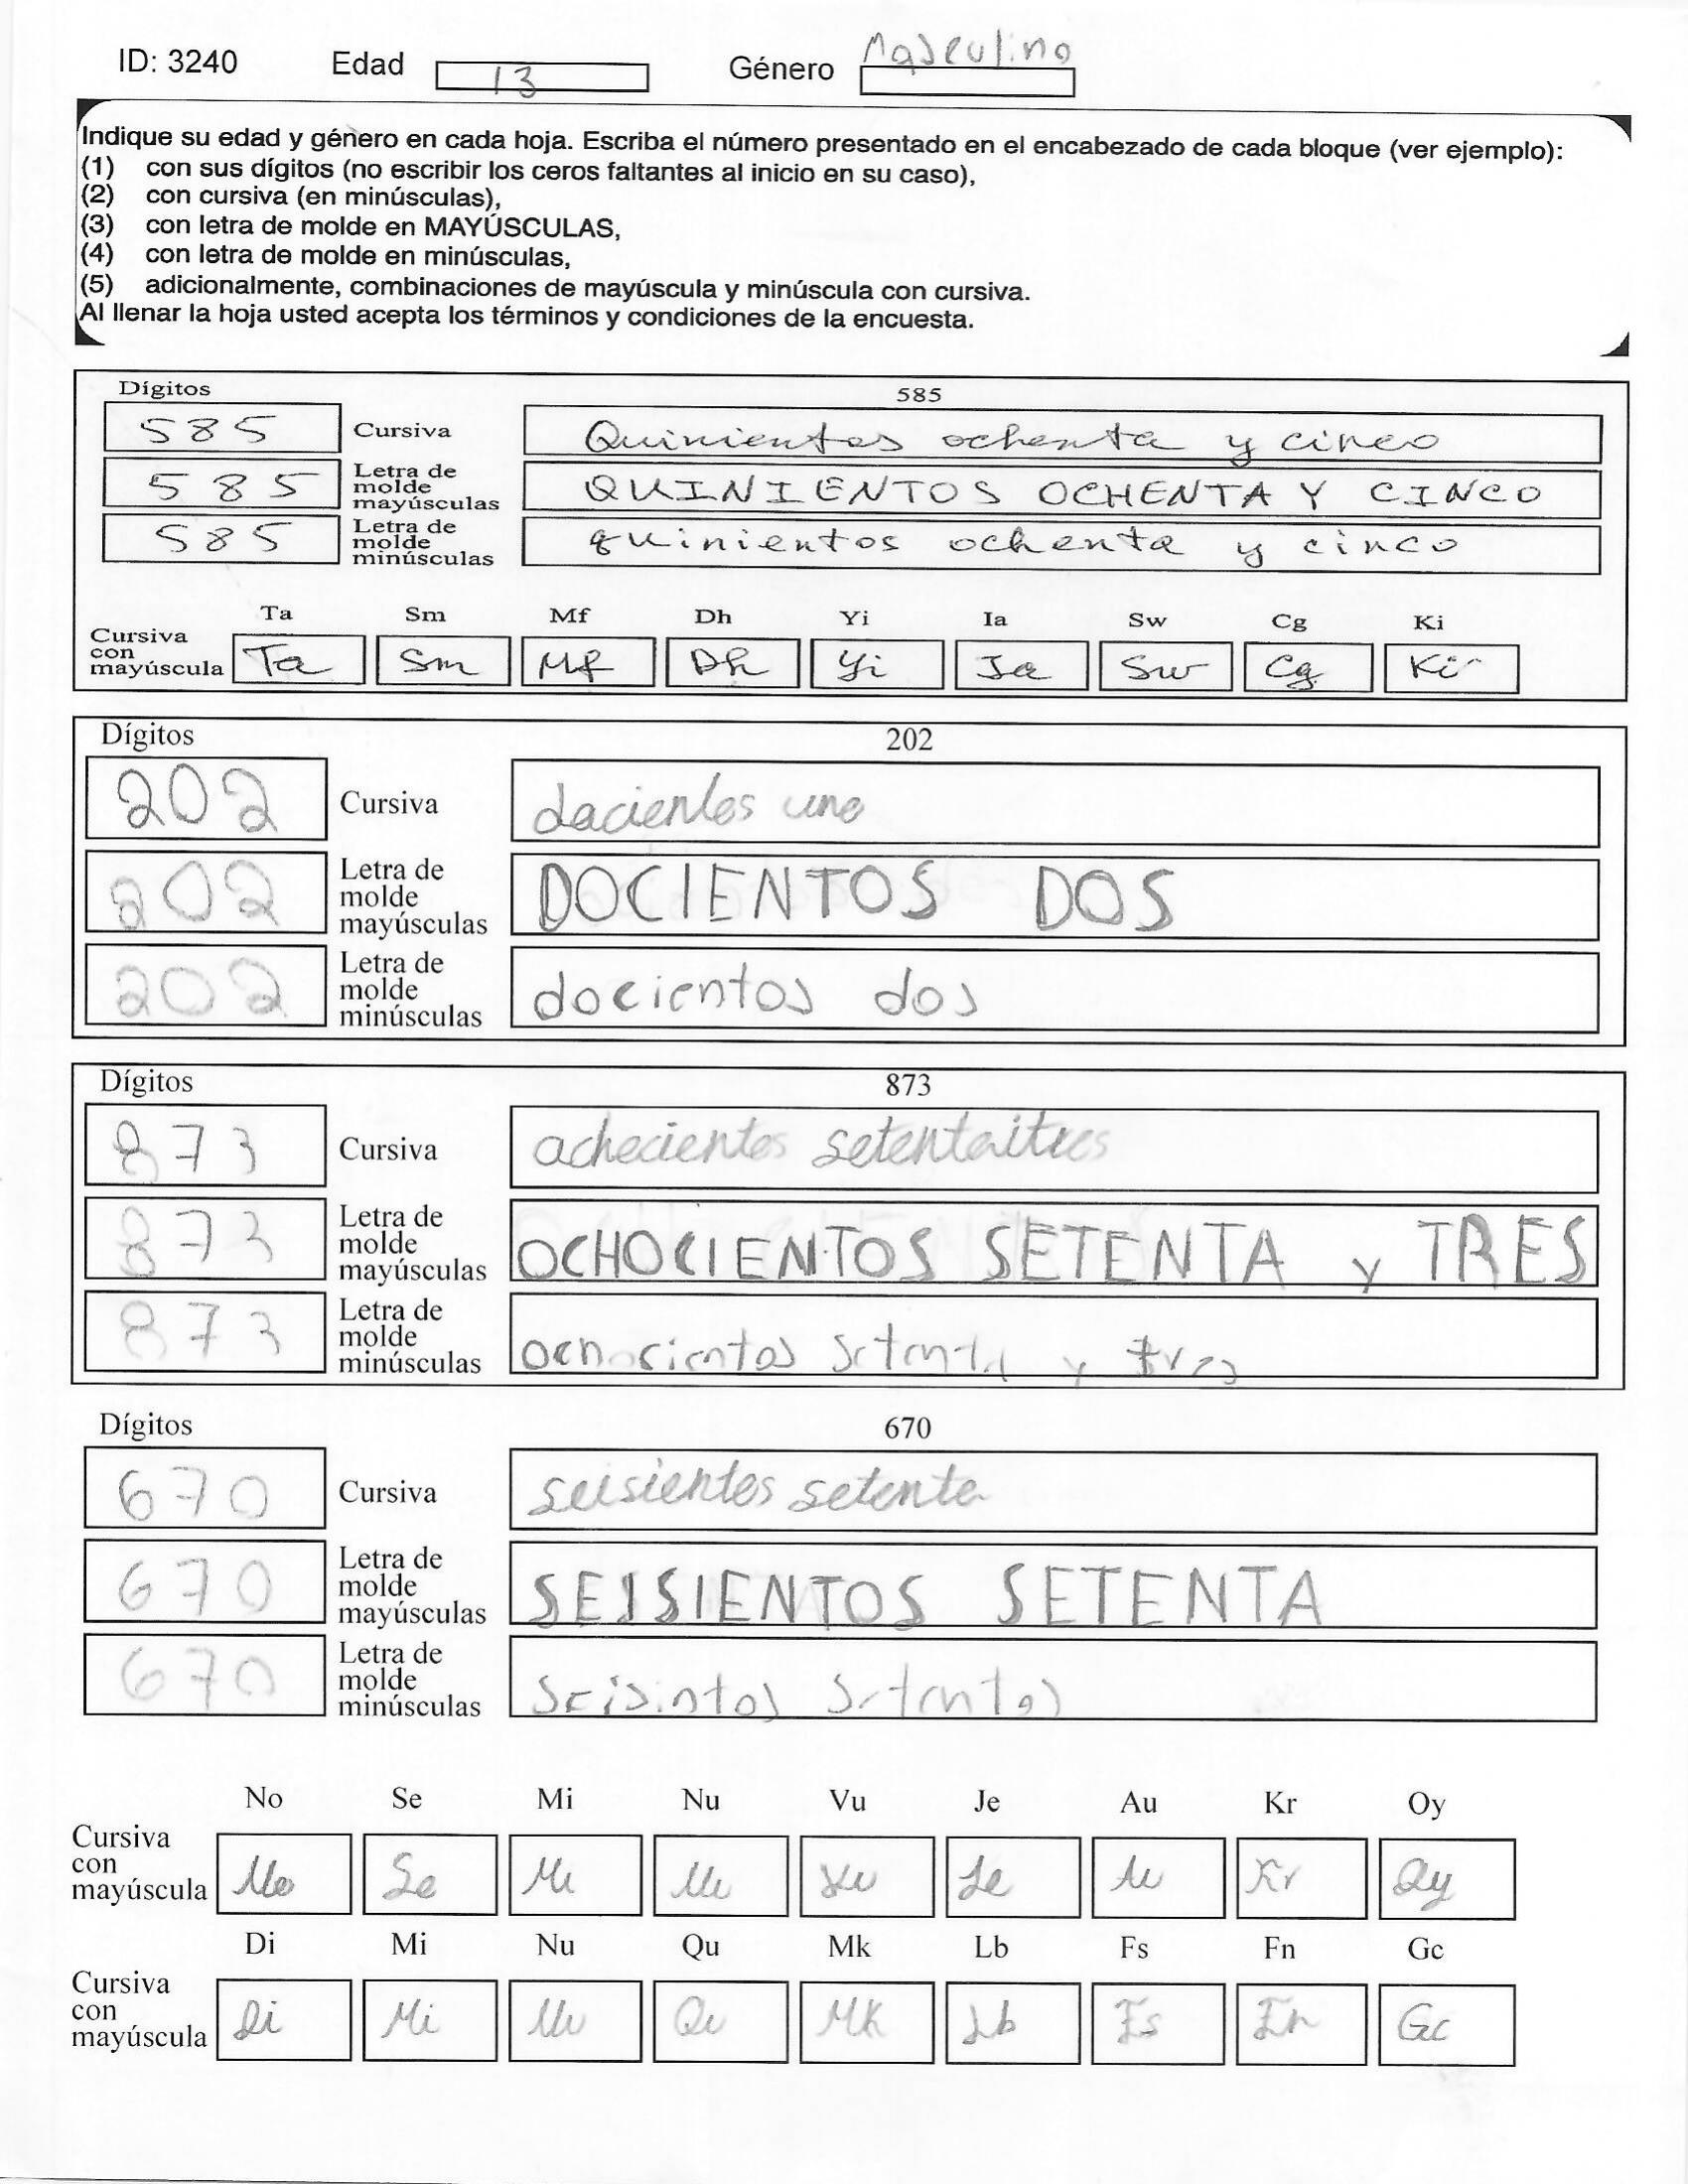 ID: 3240 Edad 13 Género Masculino
Indique su edad y género en cada hoja. Escriba el número presentado en el encabezado de cada bloque (ver ejemplo):
(1) con sus dígitos (no escribir los ceros faltantes al inicio en su caso),
(2) con cursiva (en minúsculas),
(3) con letra de molde en MAYÚSCULAS,
(4) con letra de molde en minúsculas,
(5) adicionalmente, combinaciones de mayúscula y minúscula con cursiva.
Al llenar la hoja usted acepta los términos y condiciones de la encuesta.
Dígitos 585
585 Cursiva Quinientos ochenta y cinco
585 Letra de molde mayúsculas QUINIENTOS OCHENTA Y CINCO
585 Letra de molde minúsculas quinientos ochenta y cinco
Ta Sm Mf Dh Yi Ia Sw Cg Ki
Cursiva con mayúscula Ta Sm Mf Dh Yi Ia Sw Cg Ki
Dígitos 202
202 Cursiva docientos uno
202 Letra de molde mayúsculas DOCIENTOS DOS
202 Letra de molde minúsculas docientos dos
Dígitos 873
873 Cursiva ochocientos setentaitres
873 Letra de molde mayúsculas OCHOCIENTOS SETENTA y TRES
873 Letra de molde minúsculas ochocientos setenta y tres
Dígitos 670
670 Cursiva seisientos setenta
670 Letra de molde mayúsculas SEISIENTOS SETENTA
670 Letra de molde minúsculas seisintos setentos
No Se Mi Nu Vu Je Au Kr Oy
Cursiva con mayúscula No Se Mi Nu Vu Je Au Kr Oy
Di Mi Nu Qu Mk Lb Fs Fn Gc
Cursiva con mayúscula Di Mi Nu Qu Mk Lb Fs Fn Gc